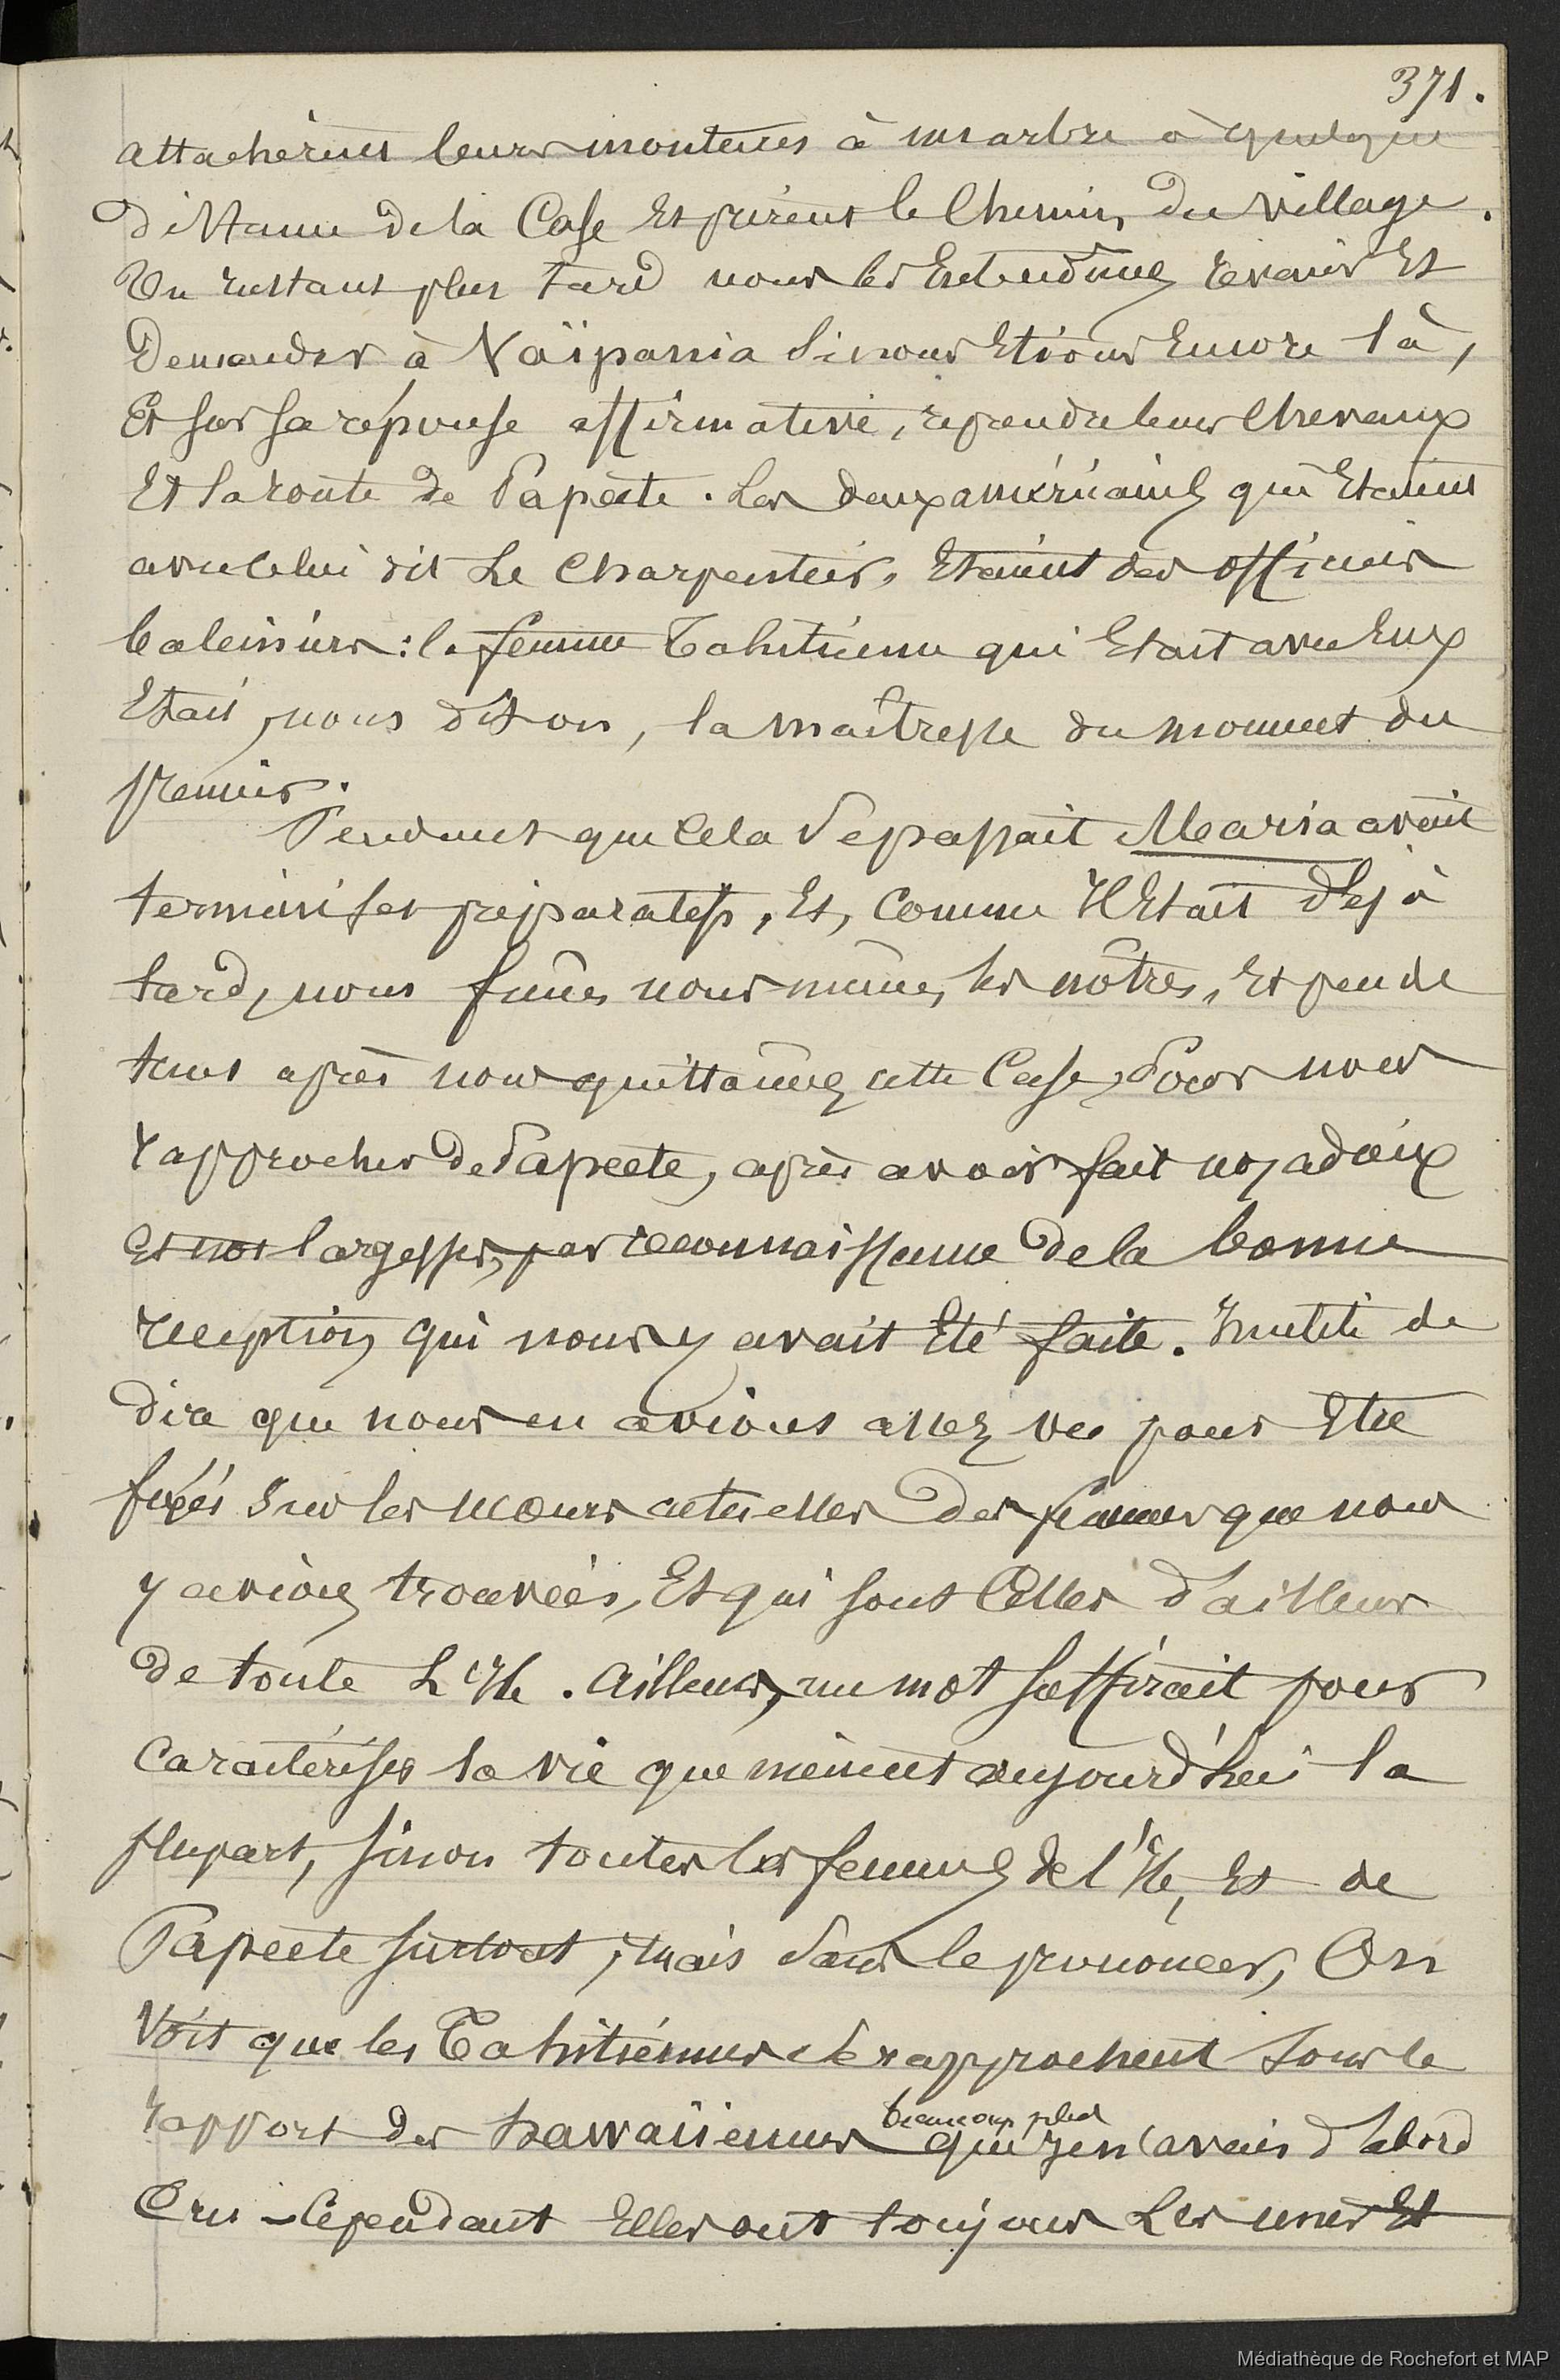 371.
attachèrent leurs montures à un arbre à quelque
distance de la Case et prirent le Chemin du village.
Un instant plus tard nous les Entendîmes revenir Et
Demander à Vaïpania si nous Etions Encore là,
Et sur sa réponse affirmative, reprendre leurs Chevaux
Et la route de Papeete. Les deux américains qui Etaient
avec celui dit Le Charpentier, Etaient des officiers
baleiniers : la femme Tahitienne qui Etait avec Eux
Etait, nous dit on, la maîtresse du moment du
premier.
Pendant que Cela se passait Maria avait
terminé ses préparatifs, Et, Comme Il Etait déjà
tard, nous fîmes nous mêmes les nôtres, Et peu de
tems après nous quittâmes cette Case, Pour nous
rapprocher de Papeete, après avoir fait nos adieux
et nos largesses, par reconnaissance de la bonne
reception qui nous y avait Eté faite. Inutile de
dire que nous en avions assez vu pour Etre
fixés sur les mœurs actuelles des femmes que nous
y avions trouvées, Et qui sont Celles d'ailleurs
de toute L'Ile. Ailleurs, un mot suffirait pour
Caractériser la vie que mènent aujourd'hui la
plupart, sinon toutes les femmes de l'Ile, Et de
Papeete surtout ; mais sans le prononcer, On
Voit que les Tahitiennes se rapprochent sous le
rapport des hawaïiennes beaucoup plus que je n'avais d'abord
Cru - Cependant Elles ont toujours Les unes Et
Médiathèque de Rochefort et MAP